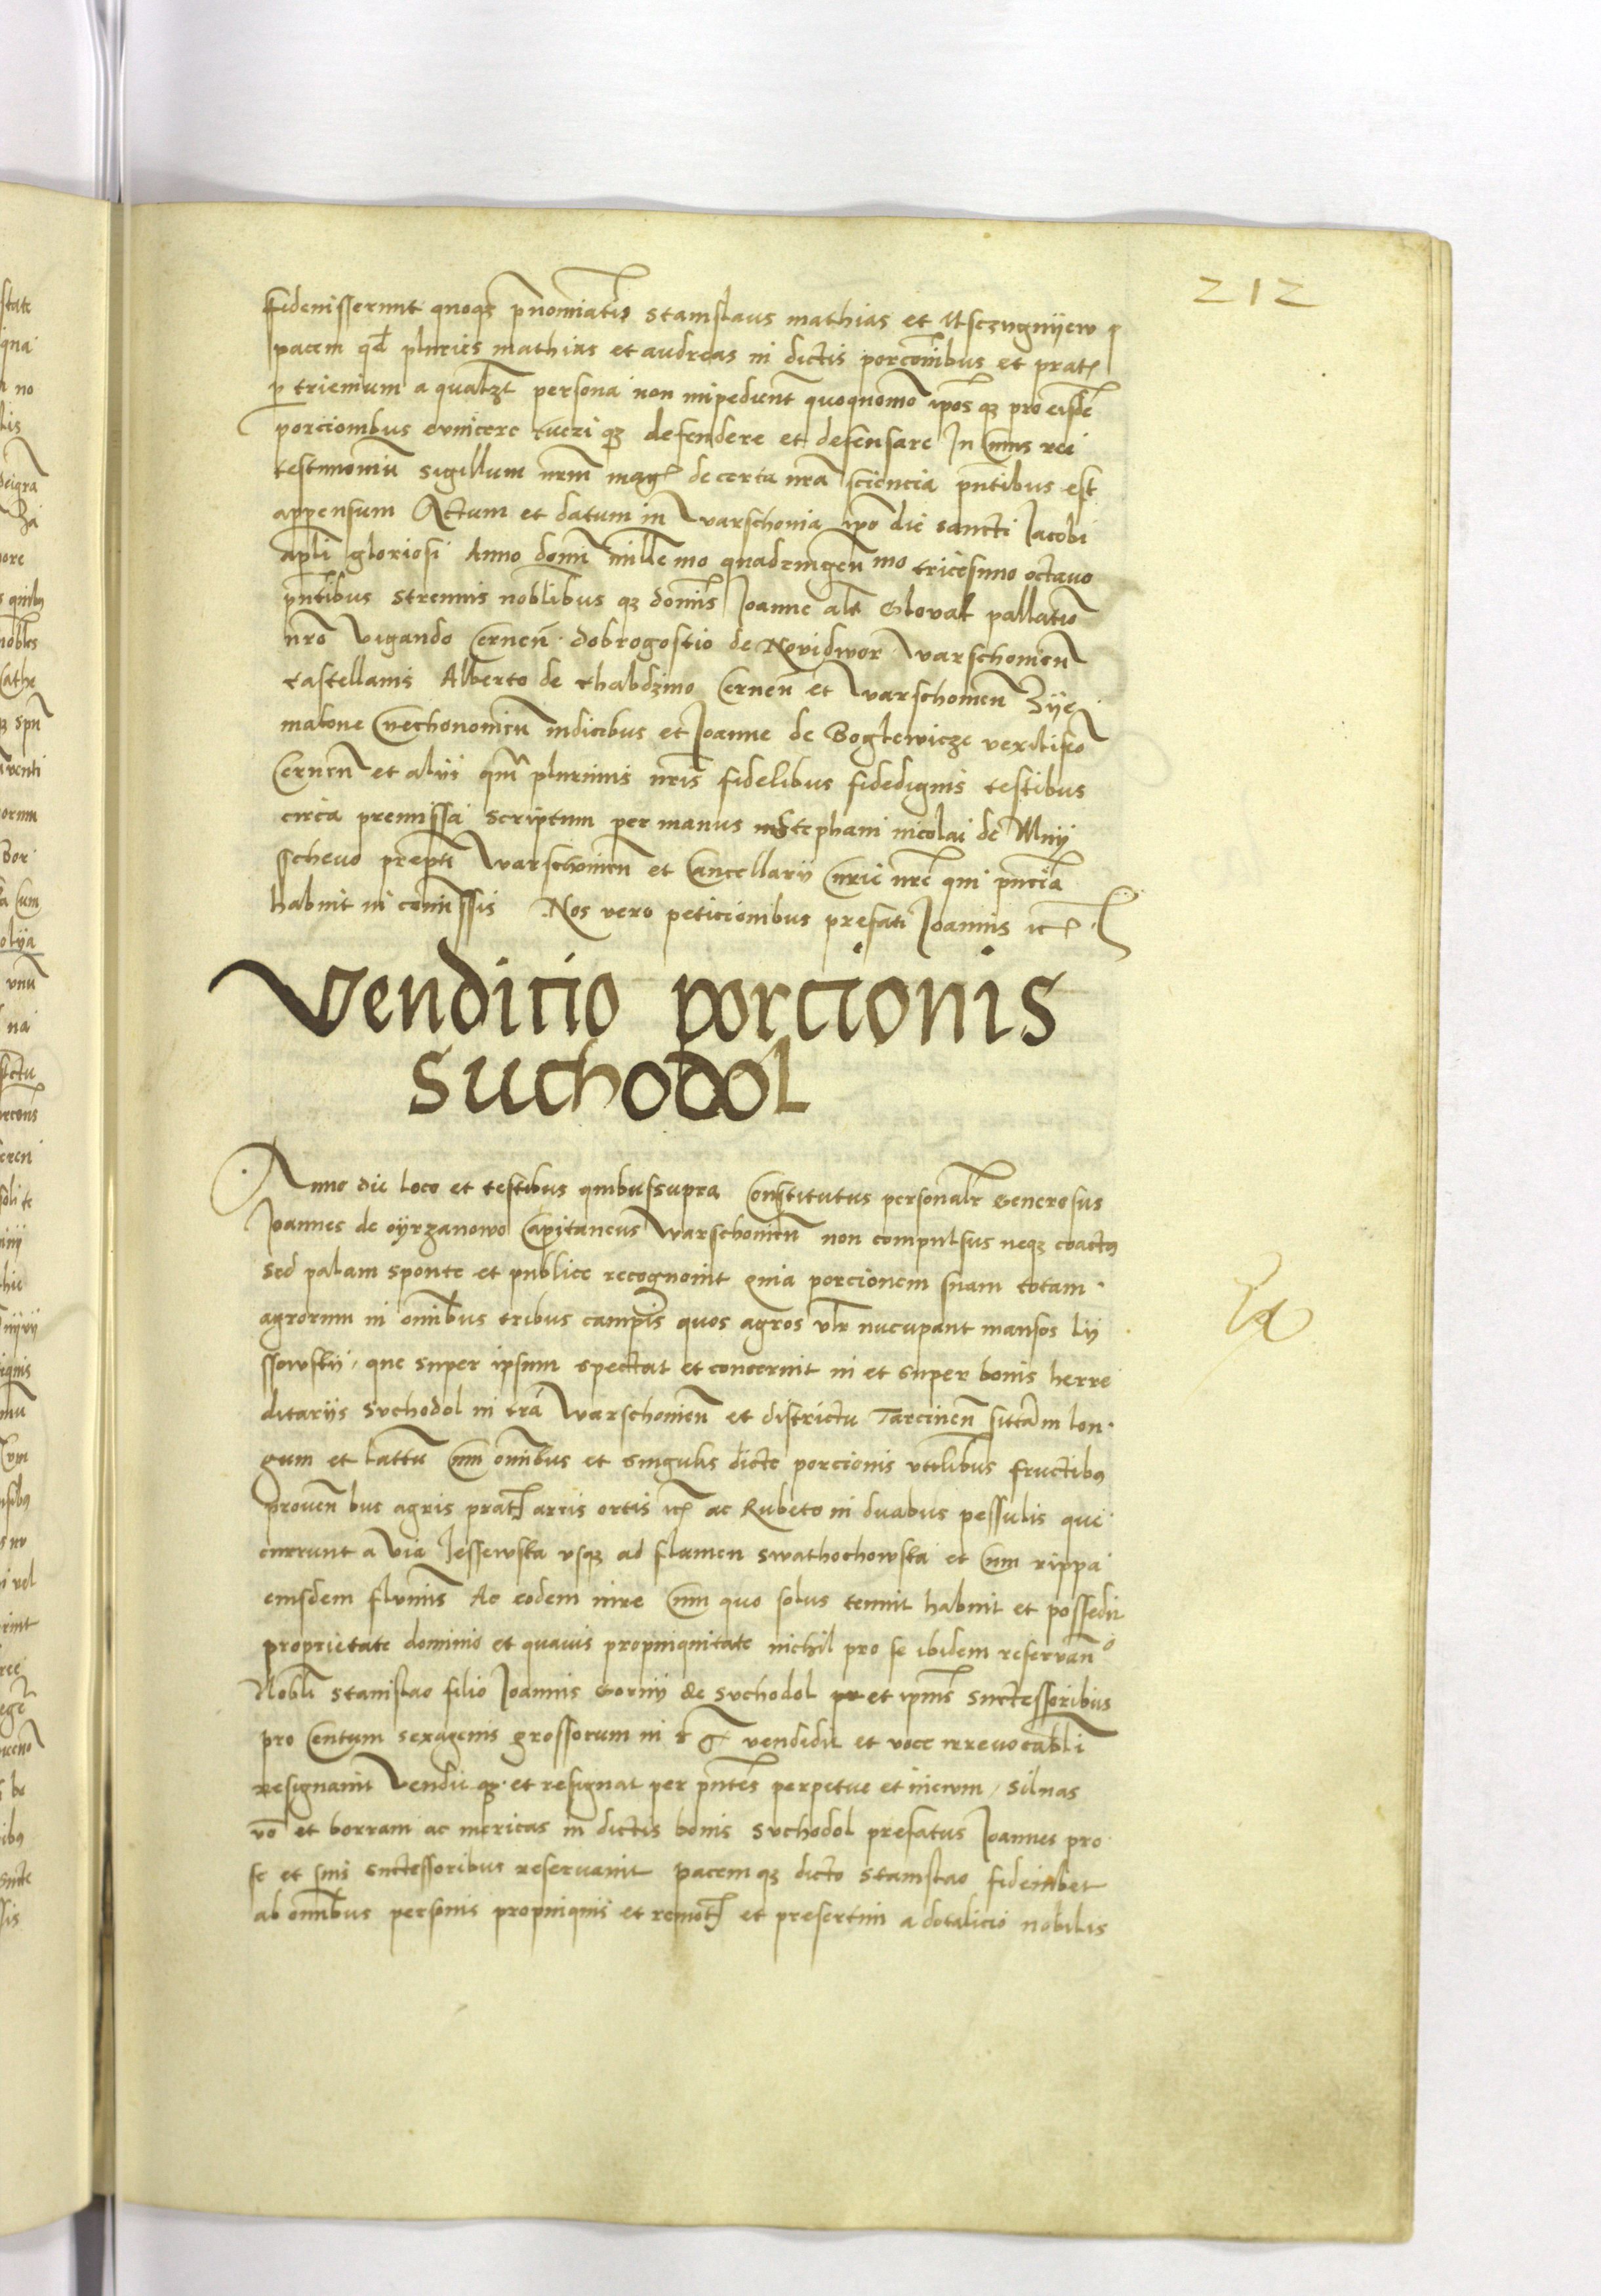 212
Fideiusserunt quoqz pnominatus Stanislaus mathias et Msczugnyew p
pacem qd pluries mathias et andreas in dictis porcionibus et prat
p trienium a qualzt persona non impediunt quoquomo ipos qz pro eisde
porcionibus evincere tueri qz defendere et defensare In Cuius rei
testimoniu sigillum nrm mag de certa nra sciencia pntibus est
appensum Actum et datum in Warschouia ipo die sancti Jacobi
apli gloriosi Anno domi millemo quadringenmo tricesimo octauo
pntibus strenuis noblibus qz domis Joanne alt Gloval pallatio
nro Vigando Cernen Dobrogostio de Novidwor Warschouien
castellanis Alberto de Rhabdzino Cernen et Warschouien Zye
malone Ciechonouien iudicibus et Joanne de Boglewicze vexilifo
Cernen et alys qm plurimis nris fidelibus fidedignis testibus
circa premissa Scriptum per manus Stephani nicolai de Mny
schevo prepti Warschouien et Cancellarii Curie nre qui pncia
habuit in comissis Nos vero peticionibus prefati Joannis etc
Vendicio porcionis
Suchodol
Anno die loco et testibus quibussupra Constitutus personalr Generosus
Joannes de oyrzanowo Capitaneus Warschouien non compulsus neqz coactus
sed palam sponte et publice recognouit quia porcionem suam totam
agrorum in omibus tribus campis quos agros vlr nucupant mansos ly
ssowsky, que super ipsum spectat et concernit in et super bonis herre
ditariis Suchodol in tra Warschouien et districtu Tarcinen sittam lon
gum et lattu Cum omibus et singulis dicte porcionis vtilibus fructibus
prouenbus agris prat arris ortis etc ac Rubeto in duabus pessulis que
currunt a via Jessewska vsqz ad flumen Swathochowska et Cum rippa
eiusdem fluminis Ac eodem iure Cum quo solus tenuit habuit et possedit
proprietate dominio et quauis propinquitate nichil pro se ibidem reseruano
Nobli Stanislao filio Joannis Gorny de Suchodol et ipius successoribus
pro Centum sexagenis grossorum in vendidit et voce irreuocabli
resignauit Vendit qz et resignat per pntes perpetue et in euum, siluas
vo et borram ac mericas in dictis bonis Suchodol prefatus Joannes pro
se et suis successoribus reseruauit pacem qz dicto Stanislao fideiubet
ab omibus personis propinquis et remot et presertim a dotalicio nobilis